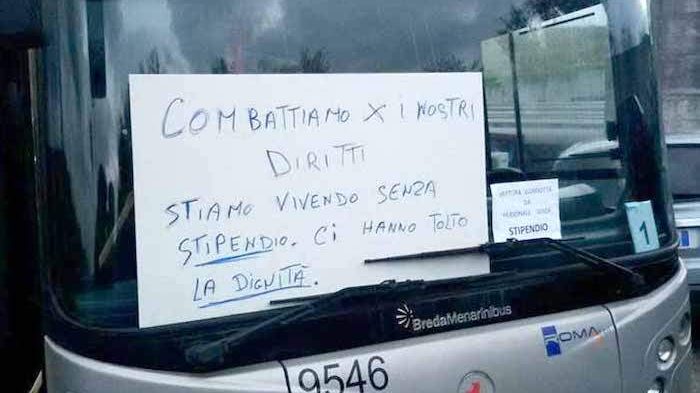 COMBATTIAMO X I NOSTRI
DIRITTI
STIAMO VIVENDO SENZA
STIPENDIO. CI HANNO TOLTO
LA DIGNITÀ.
VETTURA CONDOTTA
DA
PERSONALE SENZA
STIPENDIO
1
BredaMenarinibus
ROMA
9546